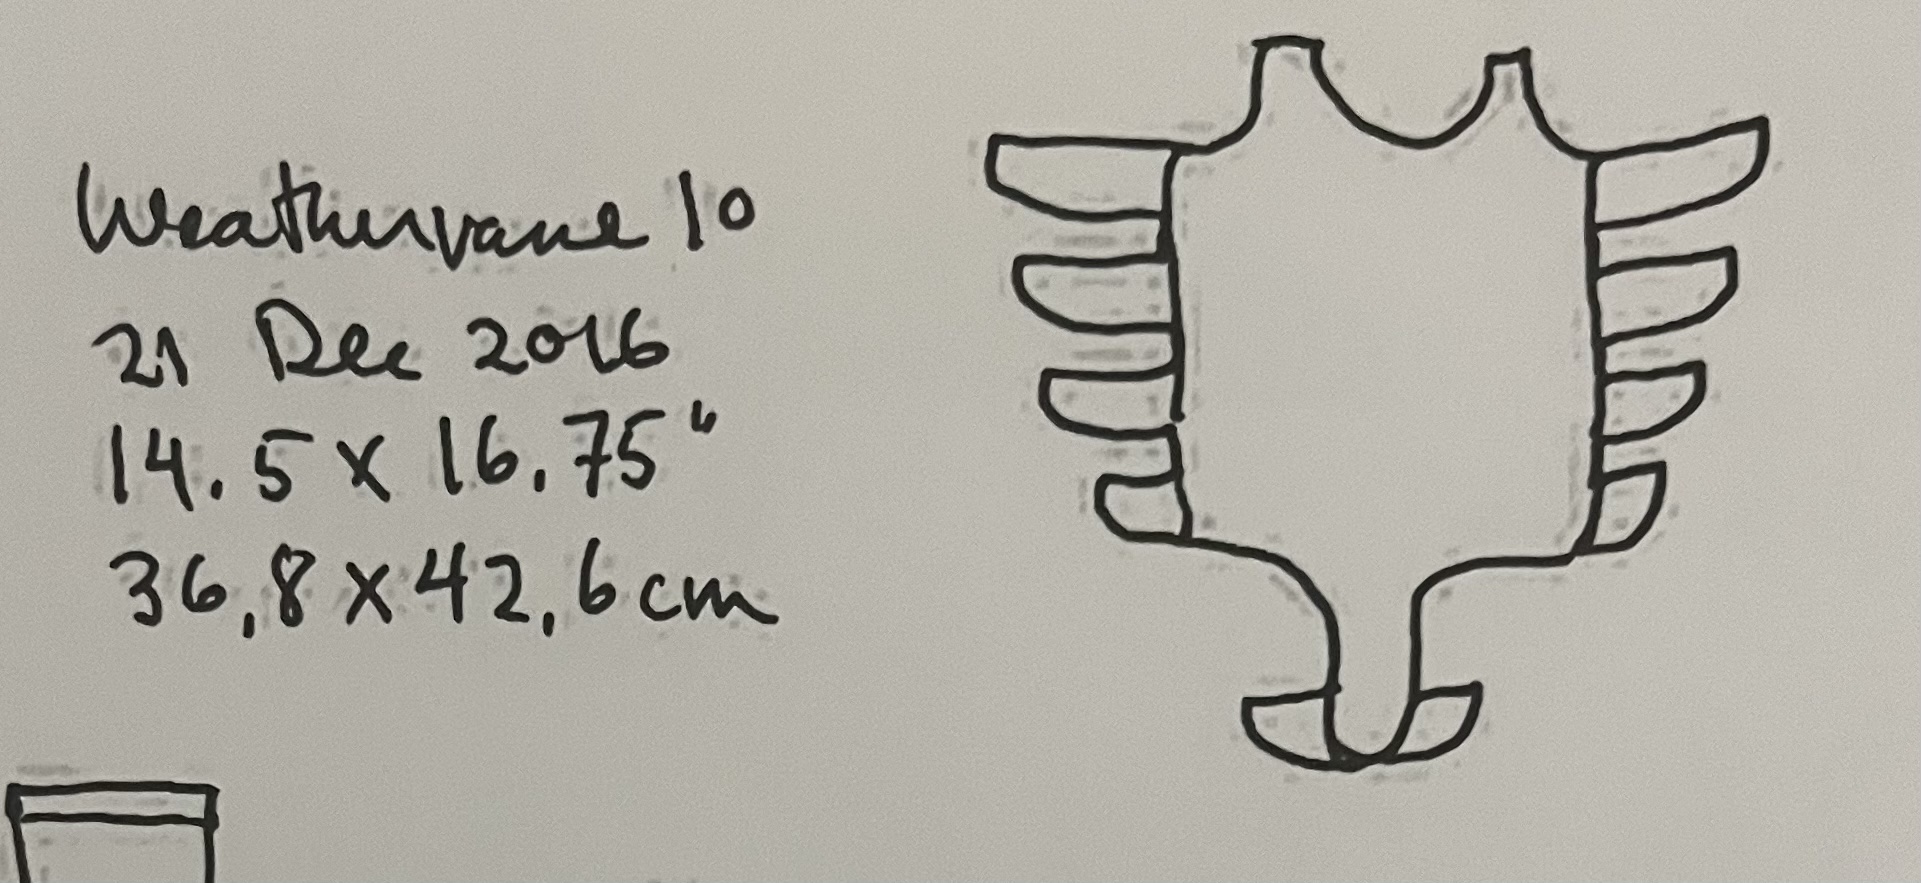 Weathervane 10
21 Dec 2016
14.5 x 16.75"
36,8 x 42,6 cm